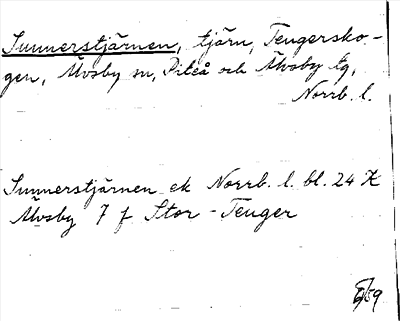 Sunnerstjärnen, tjärn, Teugersko-
gen, Älvsby sn, Piteå och Älvsby tg,
Norrb. l.
Sunnerstjärnen ek Norrb. l. bl. 24 K
Älvsby 7 f Stor-Teuger